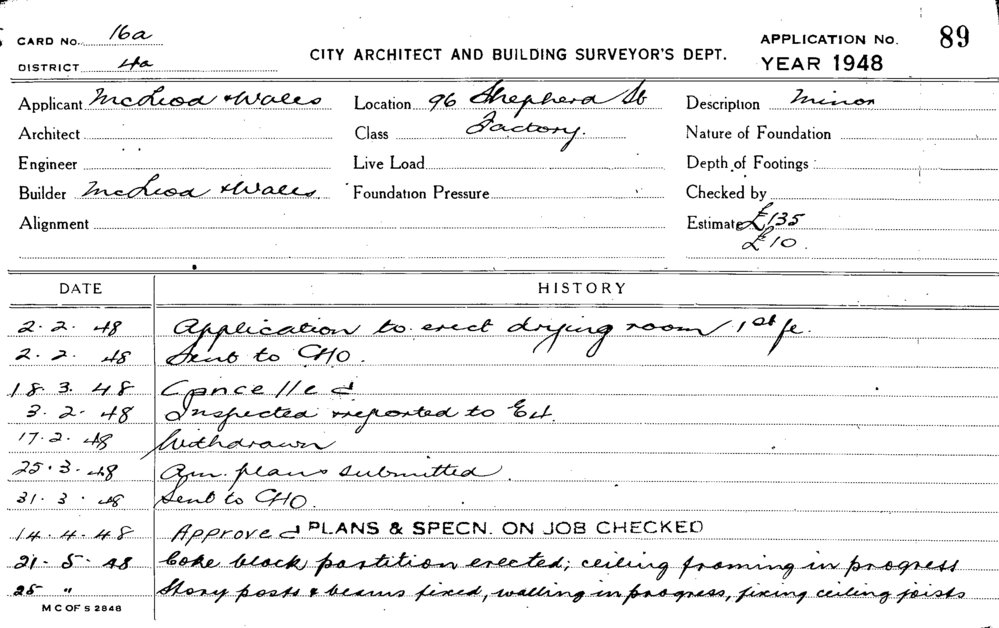 CARD No. 16a
DISTRICT 4a
CITY ARCHITECT AND BUILDING SURVEYOR'S DEPT.
APPLICATION No. 89
YEAR 1948
Applicant McLeod & Wales Location 96 Shepherd St Description Minor
Architect Class Factory. Nature of Foundation
Engineer Live Load Depth of Footings
Builder McLeod & Wales Foundation Pressure Checked by
Alignment Estimate £135
£10.
DATE HISTORY
2.2.48 Application to erect drying room 1st fl.
2.2.48 Sent to CHO.
18.3.48 Cancelled
3.2.48 Inspected & reported to
17.2.48 Withdrawn
25.3.48 Am. plans submitted.
31.3.48 Sent to CHO.
14.4.48 Approved PLANS & SPECN. ON JOB CHECKED
21.5.48 Coke block partition erected; ceiling framing in progress
25 " Story posts & beams fixed, walling in progress, fixing ceiling joists
M C OF S 2848